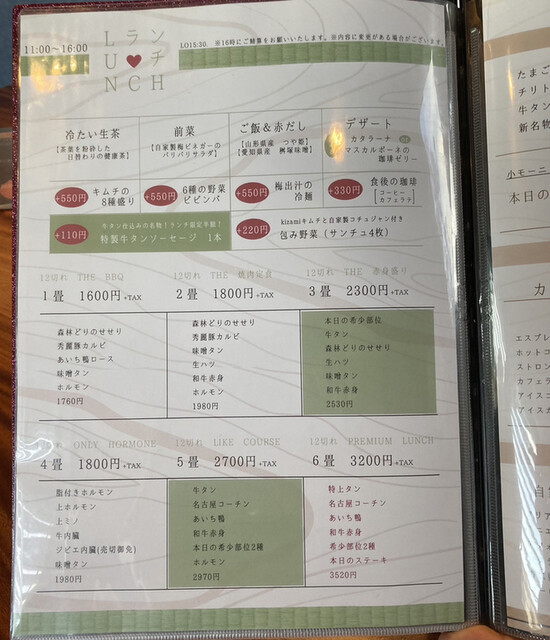 11:00～16:00
Lラン
U♥チ
NCH
LO15:30. ※16時にご精算をお願いいたします。※内容に変更がある場合がございます。
冷たい生茶
【茶葉を粉砕した
日替わりの健康茶】
前菜
【自家製梅ビネガーの
パリパリサラダ】
ご飯&赤だし
【山形県産 つや姫】
【愛知県産 桝塚味噌】
デザート
カタラーナ or
マスカルポーネの
珈琲ゼリー
+550円 キムチの
8種盛り
+550円 6種の野菜
ビビンバ
+550円 梅出汁の
冷麺
+330円 食後の珈琲
[コーヒー
カフェラテ]
+110円 牛タン仕込みの名物!ランチ限定半額!
特製牛タンソーセージ 1本
+220円 kizamiキムチと自家製コチュジャン付き
包み野菜(サンチュ4枚)
12切れ THE BBQ
1畳 1600円+TAX
12切れ THE 焼肉定食
2畳 1800円+TAX
12切れ THE 赤身盛り
3畳 2300円+TAX
森林どりのせせり
秀麗豚カルビ
あいち鴨ロース
味噌タン
ホルモン
1760円
森林どりのせせり
秀麗豚カルビ
味噌タン
生ハツ
和牛赤身
ホルモン
1980円
本日の希少部位
牛タン
森林どりのせせり
生ハツ
味噌タン
和牛赤身
2530円
ONLY HORMONE
4畳 1800円+TAX
12切れ LIKE COURSE
5畳 2700円+TAX
12切れ PREMIUM LUNCH
6畳 3200円+TAX
脂付きホルモン
上ホルモン
上ミノ
牛内臓
ジビエ内臓(売切御免)
味噌タン
1980円
牛タン
名古屋コーチン
あいち鴨
和牛赤身
本日の希少部位2種
ホルモン
2970円
特上タン
名古屋コーチン
あいち鴨
和牛赤身
希少部位2種
本日のステーキ
3520円
たまご
チリト
牛タン
新名物
小モーニ
本日の
カ
エスプレ
ホットコ
ストロン
カフェラ
アイスコ
アイスカ
自